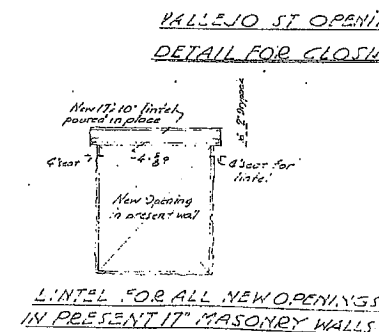 VALLEJO ST OPENI
DETAIL FOR CLOS
New 17x10" lintel
poured in place
4" seat
4" seat for
lintel
New Opening
in present wall
LINTEL FOR ALL NEW OPENINGS
IN PRESENT 17" MASONRY WALLS